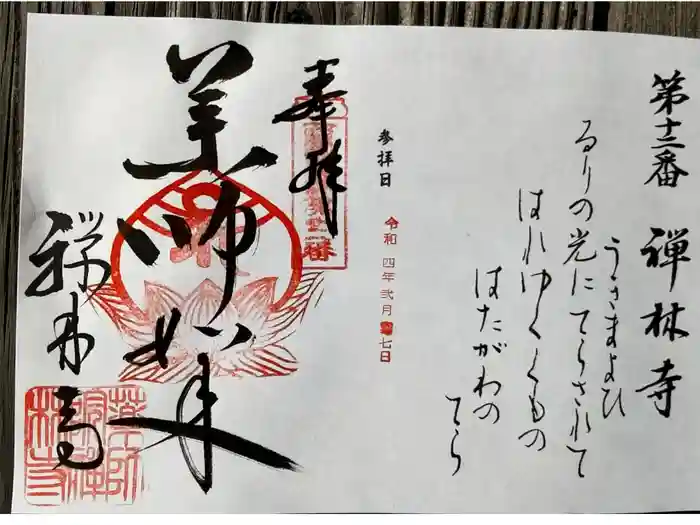 第十二番 禅林寺
るりの光にてらされて
うきまよひ
はれゆくくもの
はたがわの
てら
参拝日
令和四年弐月 七日
奉拝
薬師如来
禅林寺